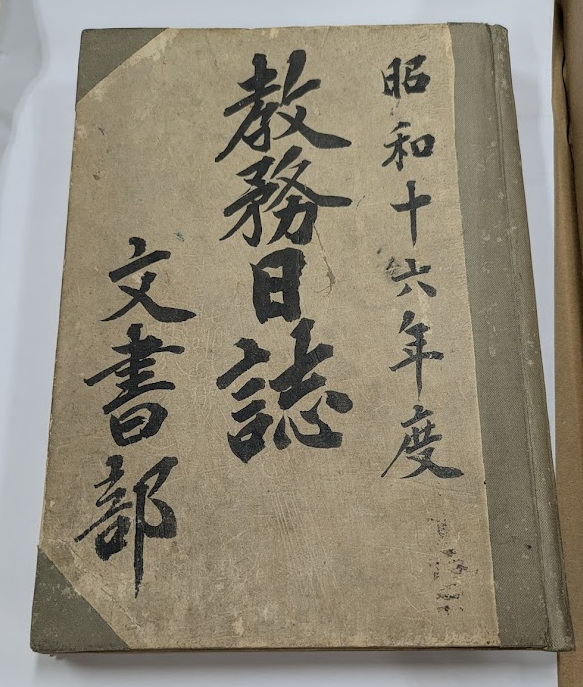 昭和十六年度
教務日誌
文書部